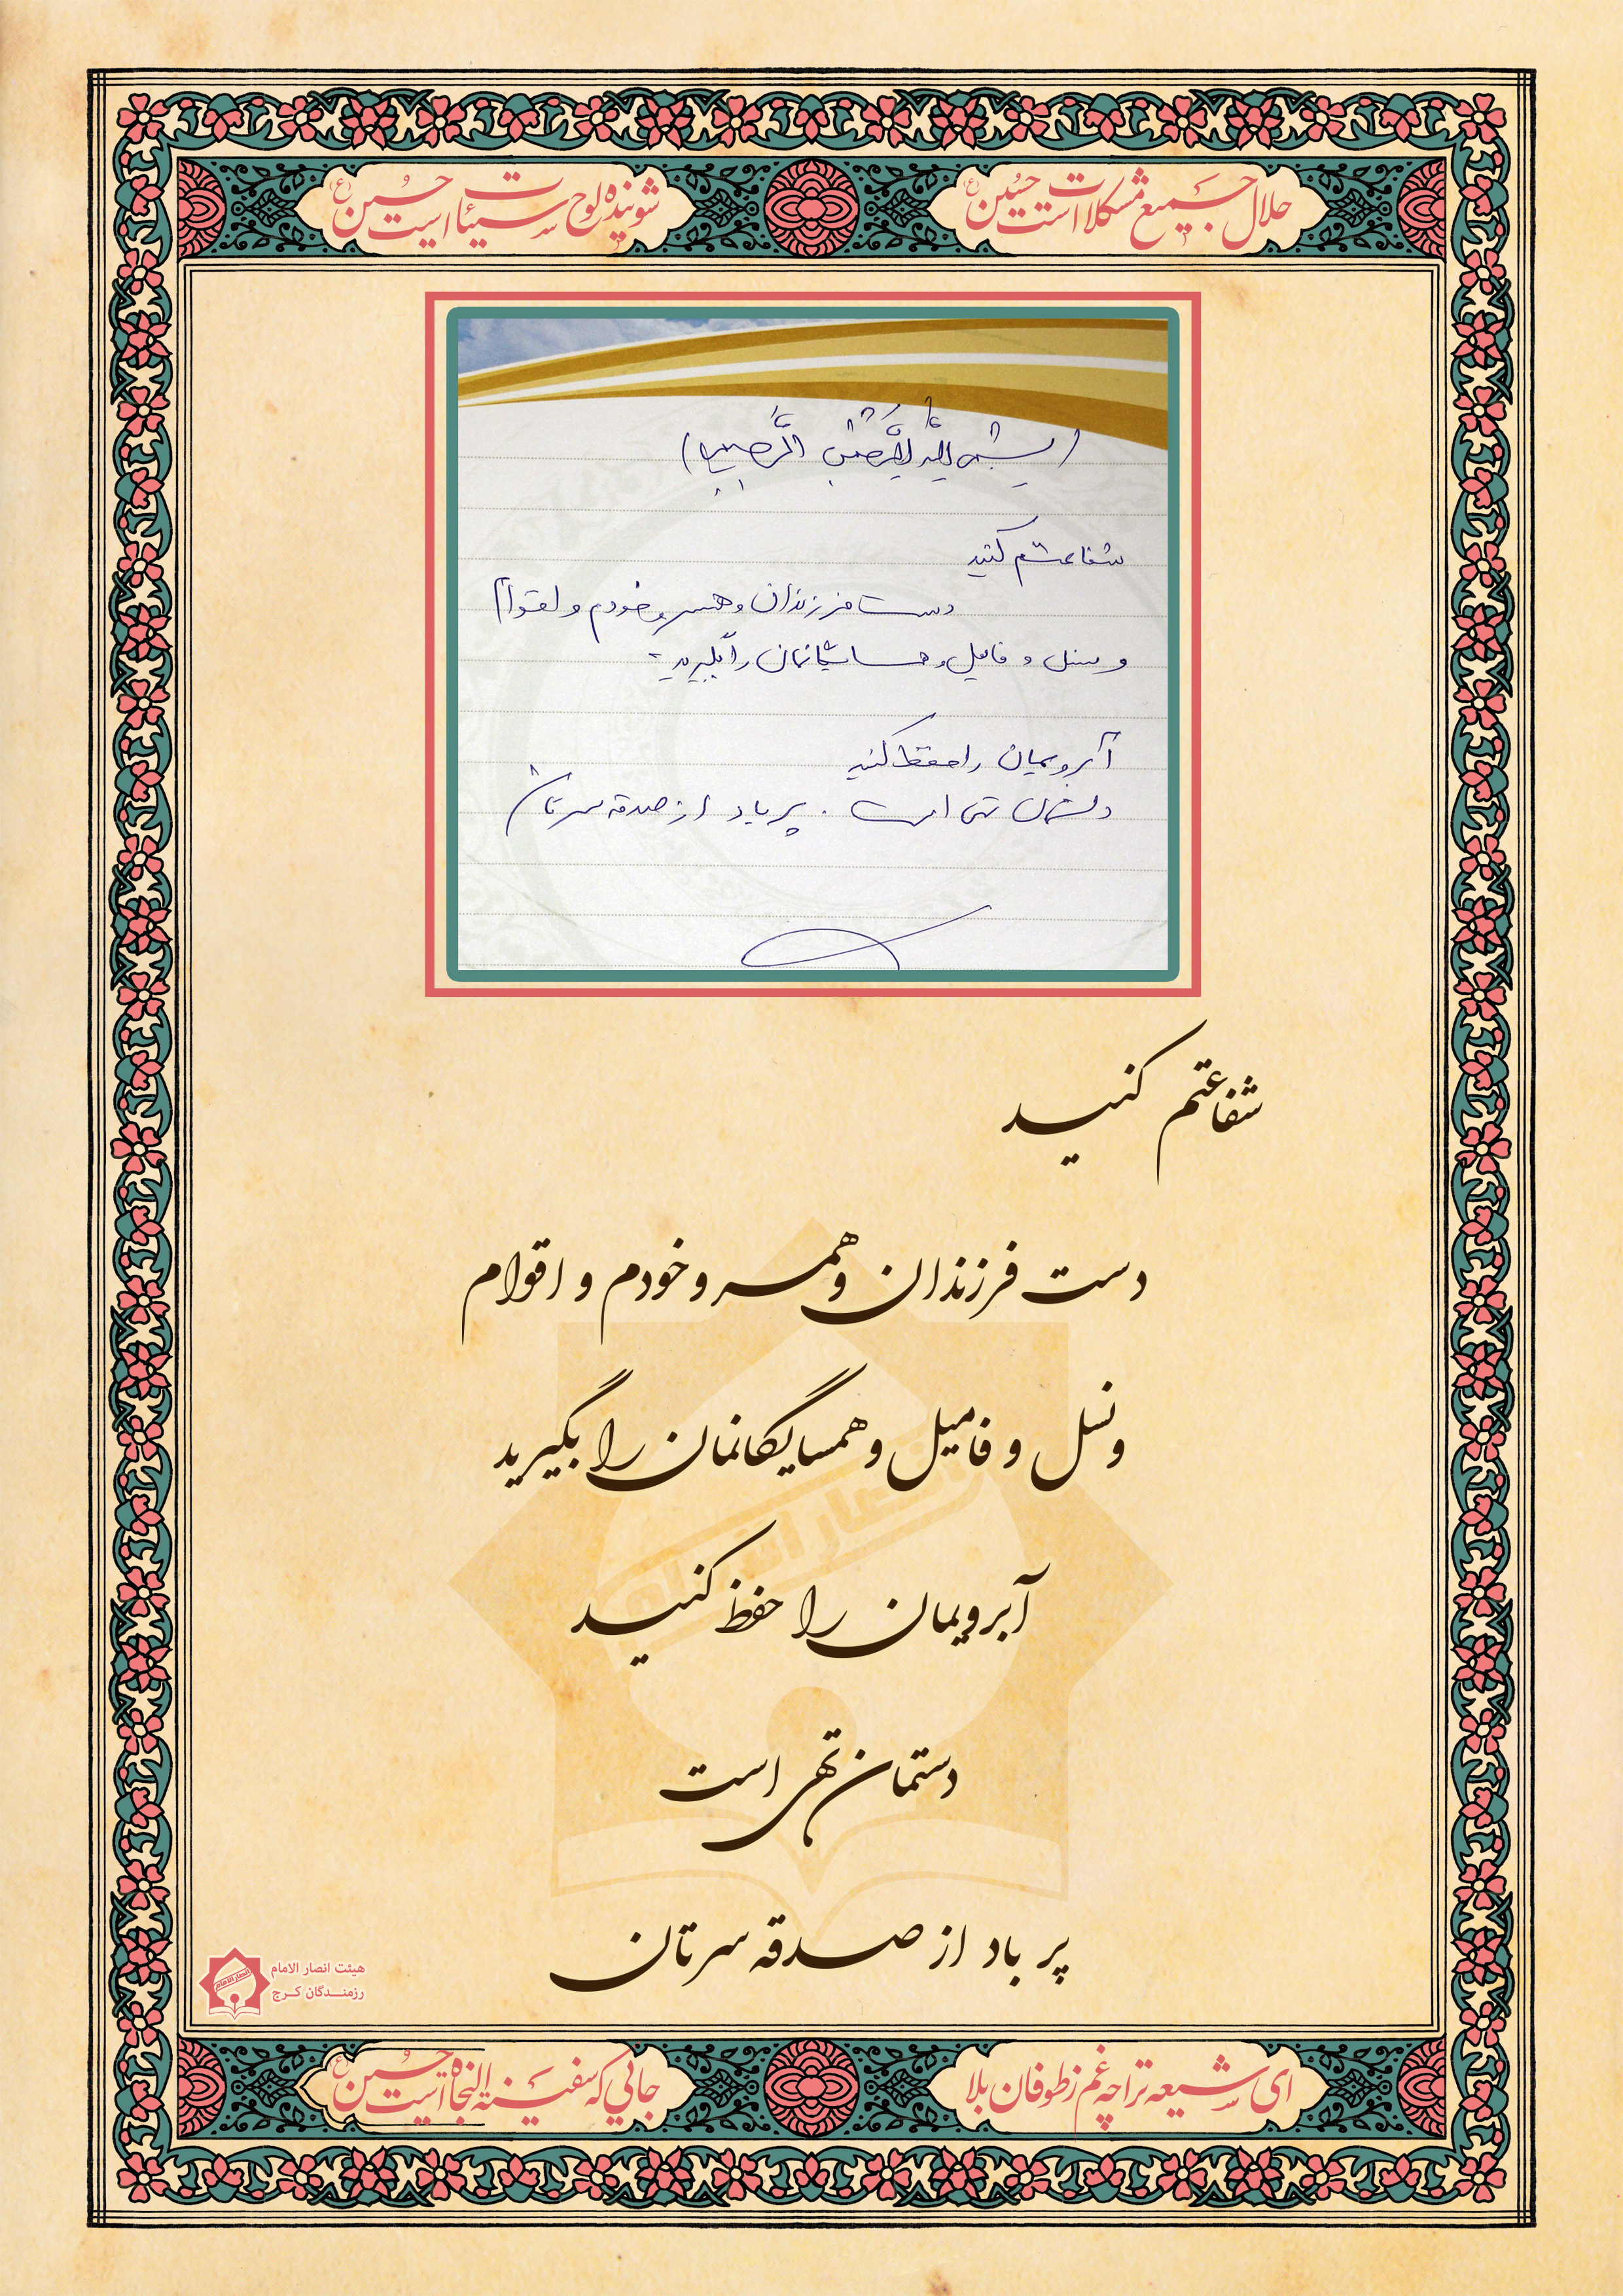 حلال جمیع مشکلات است حسین (ع)
شوینده لوح سیئات است حسین (ع)
(بسم الله الرحمن الرحیم)
شفاعتم کنید
دست فرزندان و همسر و خودم و اقوام
و نسل و فامیل و همسایگانمان را بگیرید
آبرویمان را حفظ کنید
دستمان تهی است . پر باد از صدقه سرتان
شفاعتم کنید
دست فرزندان و همسر و خودم و اقوام
و نسل و فامیل و همسایگانمان را بگیرید
آبرویمان را حفظ کنید
دستمان تهی است
پر باد از صدقه سرتان
انصار الامام
هیئت انصار الامام
رزمندگان کرج
ای شیعه ترا چه غم ز طوفان بلا
جایی که سفینة النجاة است حسین (ع)